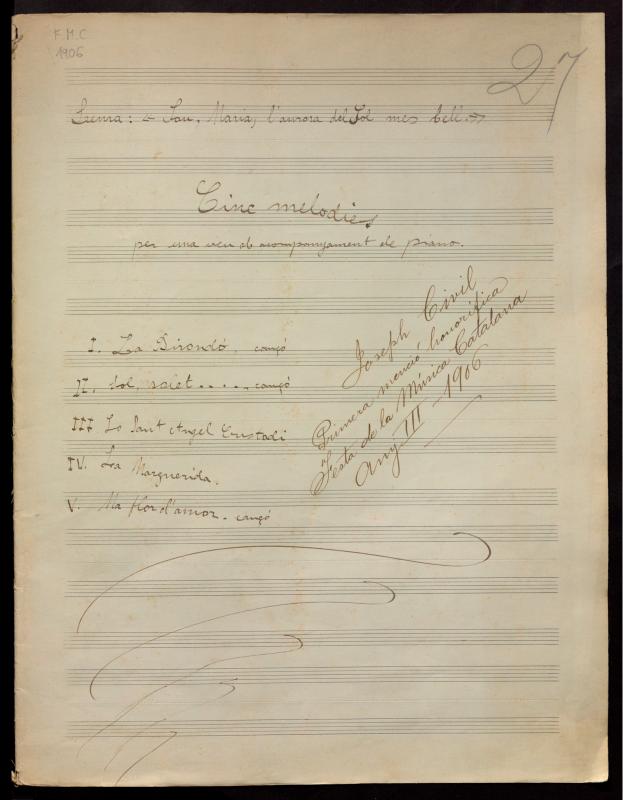 F.M.C
1906
27
Lema: « Sou, Maria, l'aurora del Sol mes bell. »
Cinc melodies
per una veu ab acompanyament de piano.
I. La Dirondó. cançó
II. Sol, solet . . . . . cançó
III Lo Sant Angel Custodi
IV. La Marguerida.
V. Ma flor d'amor. cançó
Joseph Civil
Primera menció honorífica
Festa de la Música Catalana
Any III - 1906